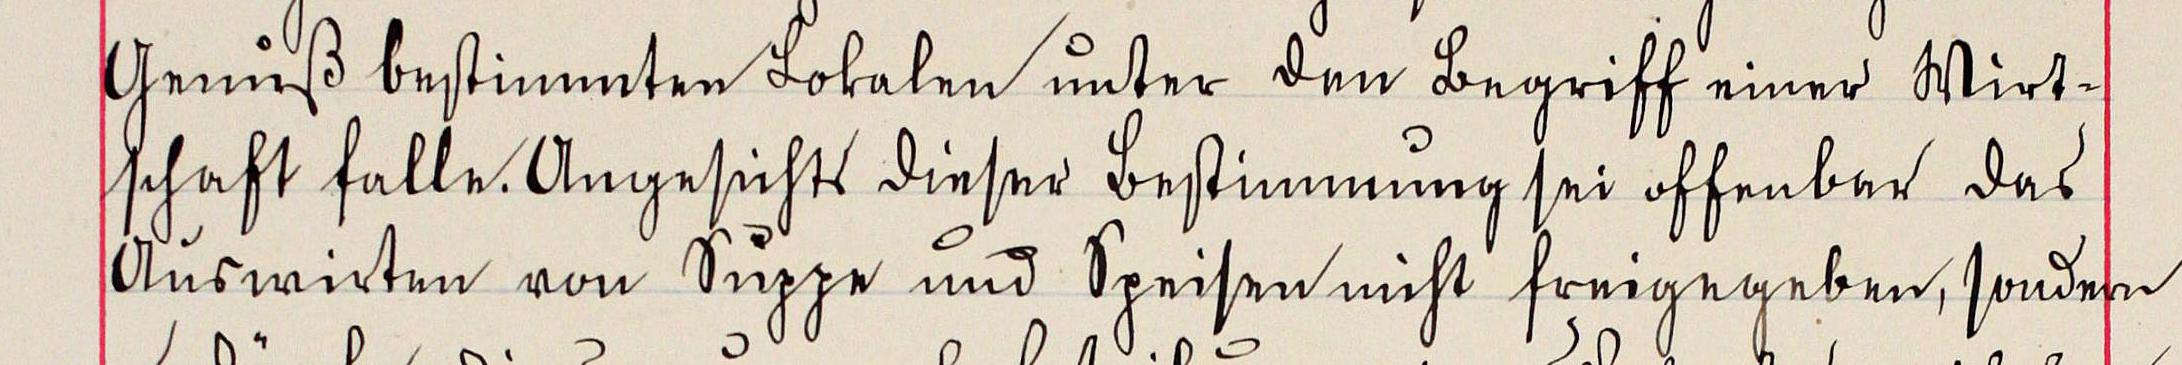 Genuß bestimmten Lokalen unter den Begriff einer Wirt-
schaft falle. Angesichts dieser Bestimmung sei offenbar das
Auswirten von Suppe und Speisen nicht freigegeben, sondern